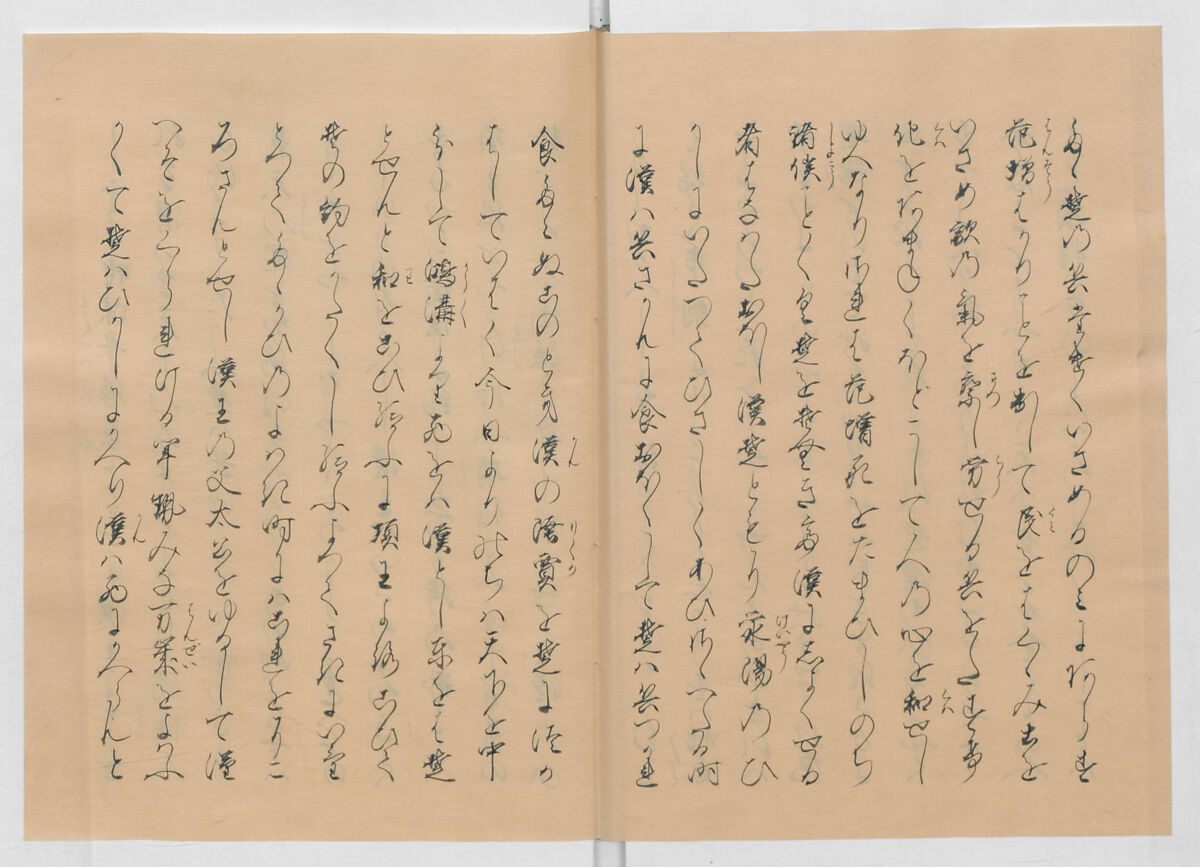 たゝ楚の兵たけくいさめるのミにあらす
范増はかりことを制して民をはくゝみ士を
いさめ敵の氣を察し労せる兵をたすけ
化をあまねくほどこして人の心を和せし
ゆへなりされは范増死をたまひしのち
諸侯ことく楚をそむき漢にしよくせる
者はなはたおほし漢楚ともに滎陽のひ
かしにいたつてひさしくあひさゝへたる時
に漢ハ兵さかんに食おほくして楚ハ兵つかれ
食たえぬこのとき漢の陸賈を楚につか
はしていはく今日よりのちハ天下を中
わかして鴻溝より西をハ漢とし東をは楚
とせんと和をこひ給ふに項王よろこひて
其の約をかたくし給ふよつてさきにいけ
とつてたゝかひのよはき時にハこれをこ
ろさんとせし漢王の父太公をゆるして漢
へそをくられける軍みな万歳をよはふ
かくて楚ハひかしにかへり漢ハ西にかへらんと